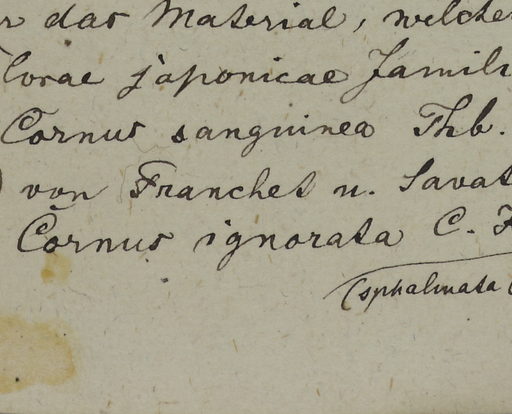 r das Material, welche
Florae japonicae famili
Cornus sanguinea Thb.
) von Franchet u. Savat
Cornus ignorata C.
(sphalmata